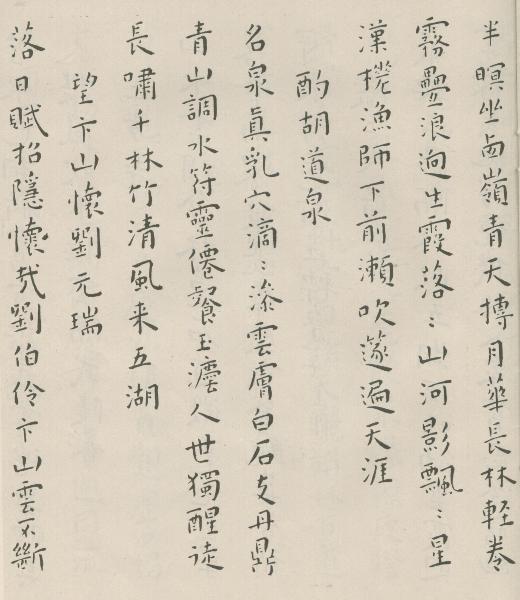 半暝坐西嶺青天搏月華長林輕卷
霧疊浪逈生霞落〻山河影飄〻星
漢槎漁師下前瀨吹篴遍天涯
酌胡道泉
名泉真乳穴滴〻滲雲膚白石支丹鼎
青山調水符靈僊餐玉瀣人世獨醒徒
長嘯千林竹清風来五湖
望卞山懷劉元瑞
落日賦招隱懷哉劉伯伶卞山雲不斷